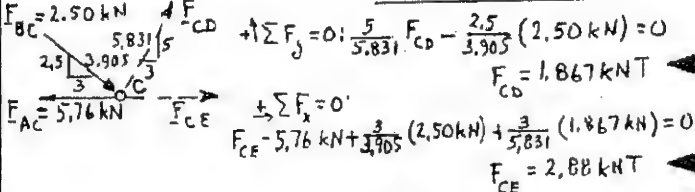 F_BC = 2.50 kN
F_CD
5,831
5
3
2,5
3,905
3
C
F_AC = 5,76 kN
F_CE
+↑ΣF_y = 0: 5/5,831 F_CD - 2,5/3,905 (2,50 kN) = 0
F_CD = 1,867 kN T
+→ ΣF_x = 0:
F_CE - 5,76 kN + 3/3,905 (2,50 kN) + 3/5,831 (1.867 kN) = 0
F_CE = 2,88 kN T